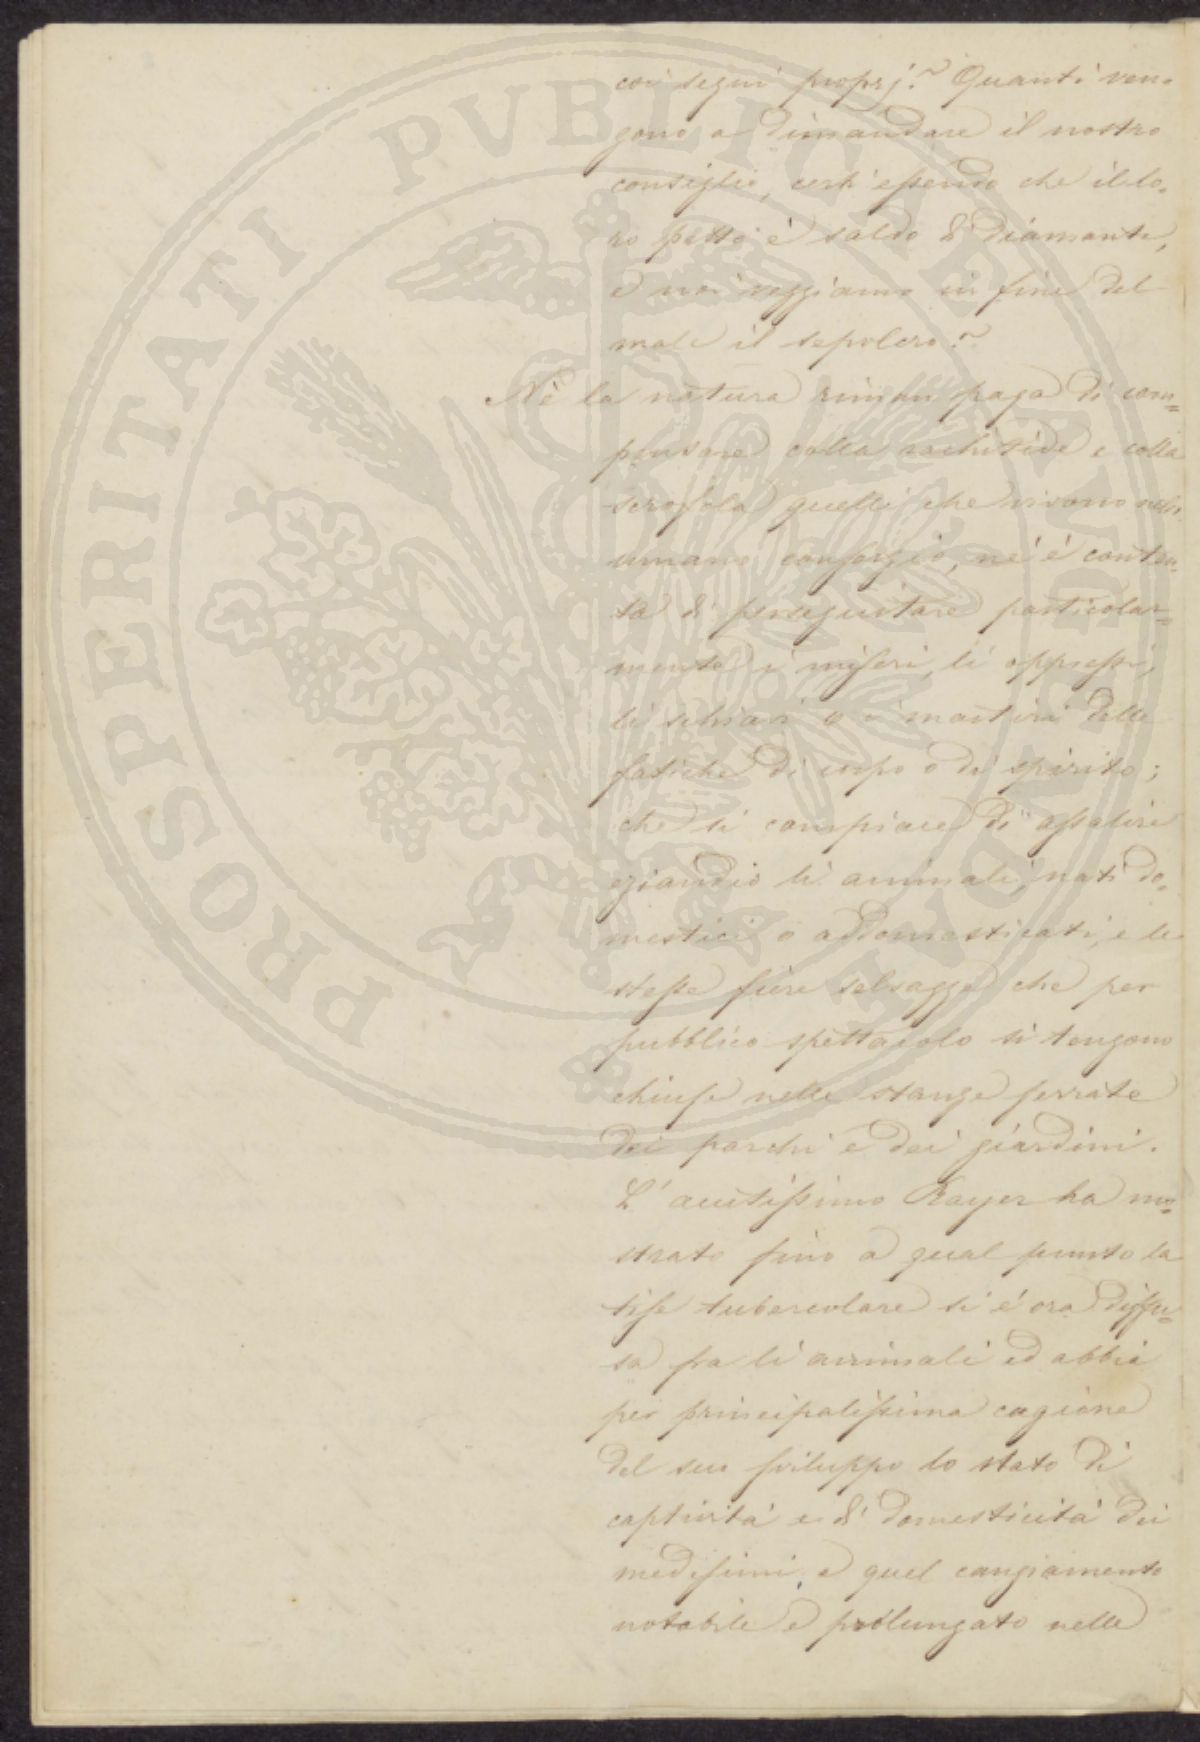 coi segni proprj? Quanti ven-
gono a dimandare il nostro
consiglio, certi essendo che il lo-
ro petto è saldo di diamante,
e noi veggiamo in fine del
male il sepolcro?
Né la natura riman paga di com=
pensare colla rachitide e colla
scrofola quelli che vivono nell'
umano consorzio, né è conten-
ta di perseguitare particolar=
mente i miseri, li oppressi,
li schiavi o i martiri delle
fatiche di corpo o di spirito;
che si compiace di assalire
eziandio li animali, nati do-
mestici o addomesticati, e le
stesse fiere selvagge che per
pubblico spettacolo si tengono
chiuse nelle stanze ferrate
dei parchi e dei giardini.
L'acutissimo Rayer ha mo=
strato fino a qual punto la
tise tubercolare si è ora diffu=
sa fra li animali ed abbia
per principalissima cagione
del suo sviluppo lo stato di
captività e di domesticità dei
medesimi, e quel cangiamento
notabile e prolungato nelle
PROSPERITATI PVBLICAE AVGENDAE